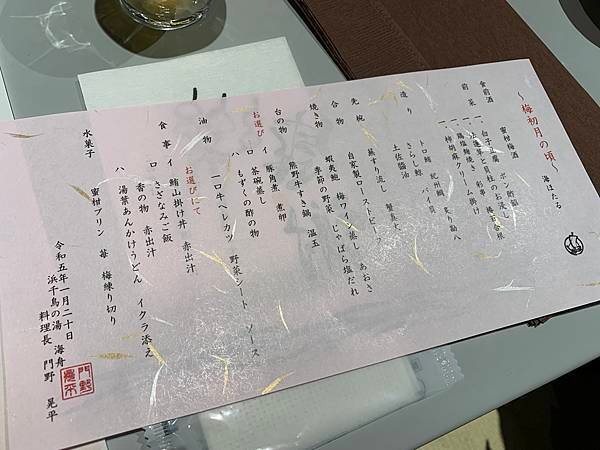 ～梅初月の頃　海ほたる
食前酒　蜜柑梅酒
前菜
一、柿胡麻クリーム掛け
造り　トロ鮪　紀州鯛　炙り勘八
さらし鯨　バイ貝
土佐醤油
先椀　蕪すり流し　蟹真丈
合物　自家製ローストビーフ
焼き物　蝦夷鮑　梅ワイン蒸し　あおさ
季節の野菜　じゃばら塩だれ
台の物　熊野牛すき鍋　温玉
お選び　イ　豚角煮　煮卵
ロ　茶碗蒸し
ハ　もずくの酢の物
油物　一口牛ヘレカツ　野菜シート　ソース
お選びにて
食事　イ　鮪山掛け丼　赤出汁
ロ　さざなみご飯
香の物　赤出汁
ハ　湯葉あんかけうどん　イクラ添え
水菓子　蜜柑プリン　苺　梅練り切り
令和五年一月二十日
浜千鳥の湯　海舟
料理長　門野　晃平